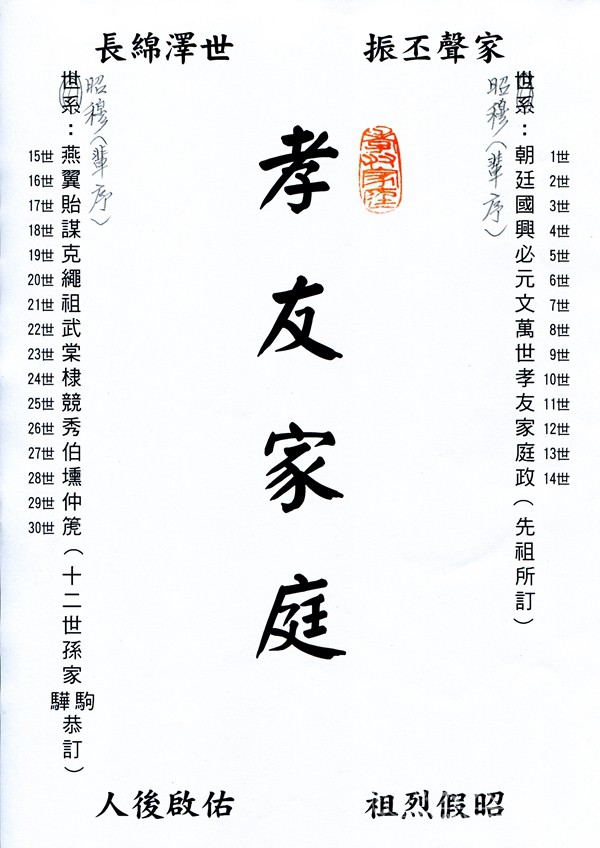 家聲丕振
世澤綿長
世系：朝廷國興必元文萬世孝友家庭政（先祖所訂）
昭穆（輩序）
1世
2世
3世
4世
5世
6世
7世
8世
9世
10世
11世
12世
13世
14世
孝友家庭
孝友家庭
世系：燕翼貽謀克繩祖武棠棣競秀伯壎仲箎（十二世孫家駒驊恭訂）
昭穆（輩序）
15世
16世
17世
18世
19世
20世
21世
22世
23世
24世
25世
26世
27世
28世
29世
30世
昭假烈祖
佑啟後人